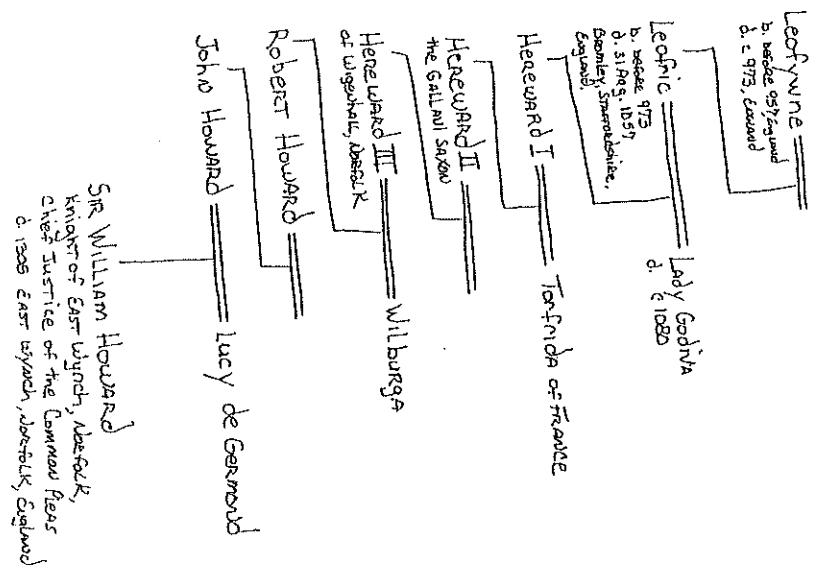 Leofywne
b. before 957, England
d. c 973, England
Leofric
b. before 973
d. 31 Aug. 1057
Bromley, Staffordshire,
England,
Lady Godiva
d. c 1080
HEREWARD I
Torfrida of FRANCE
HEREWARD II
the GALLANT SAXON
HEREWARD III
of Wigenhall, NORFOLK
Wilburga
ROBERT HOWARD
John HOWARD
Lucy de GERMOND
SIR WILLIAM HOWARD
Knight of EAST Wynch, NORFOLK,
Chief Justice of the Common Pleas
d. 1308 EAST Wynch, NORFOLK, England